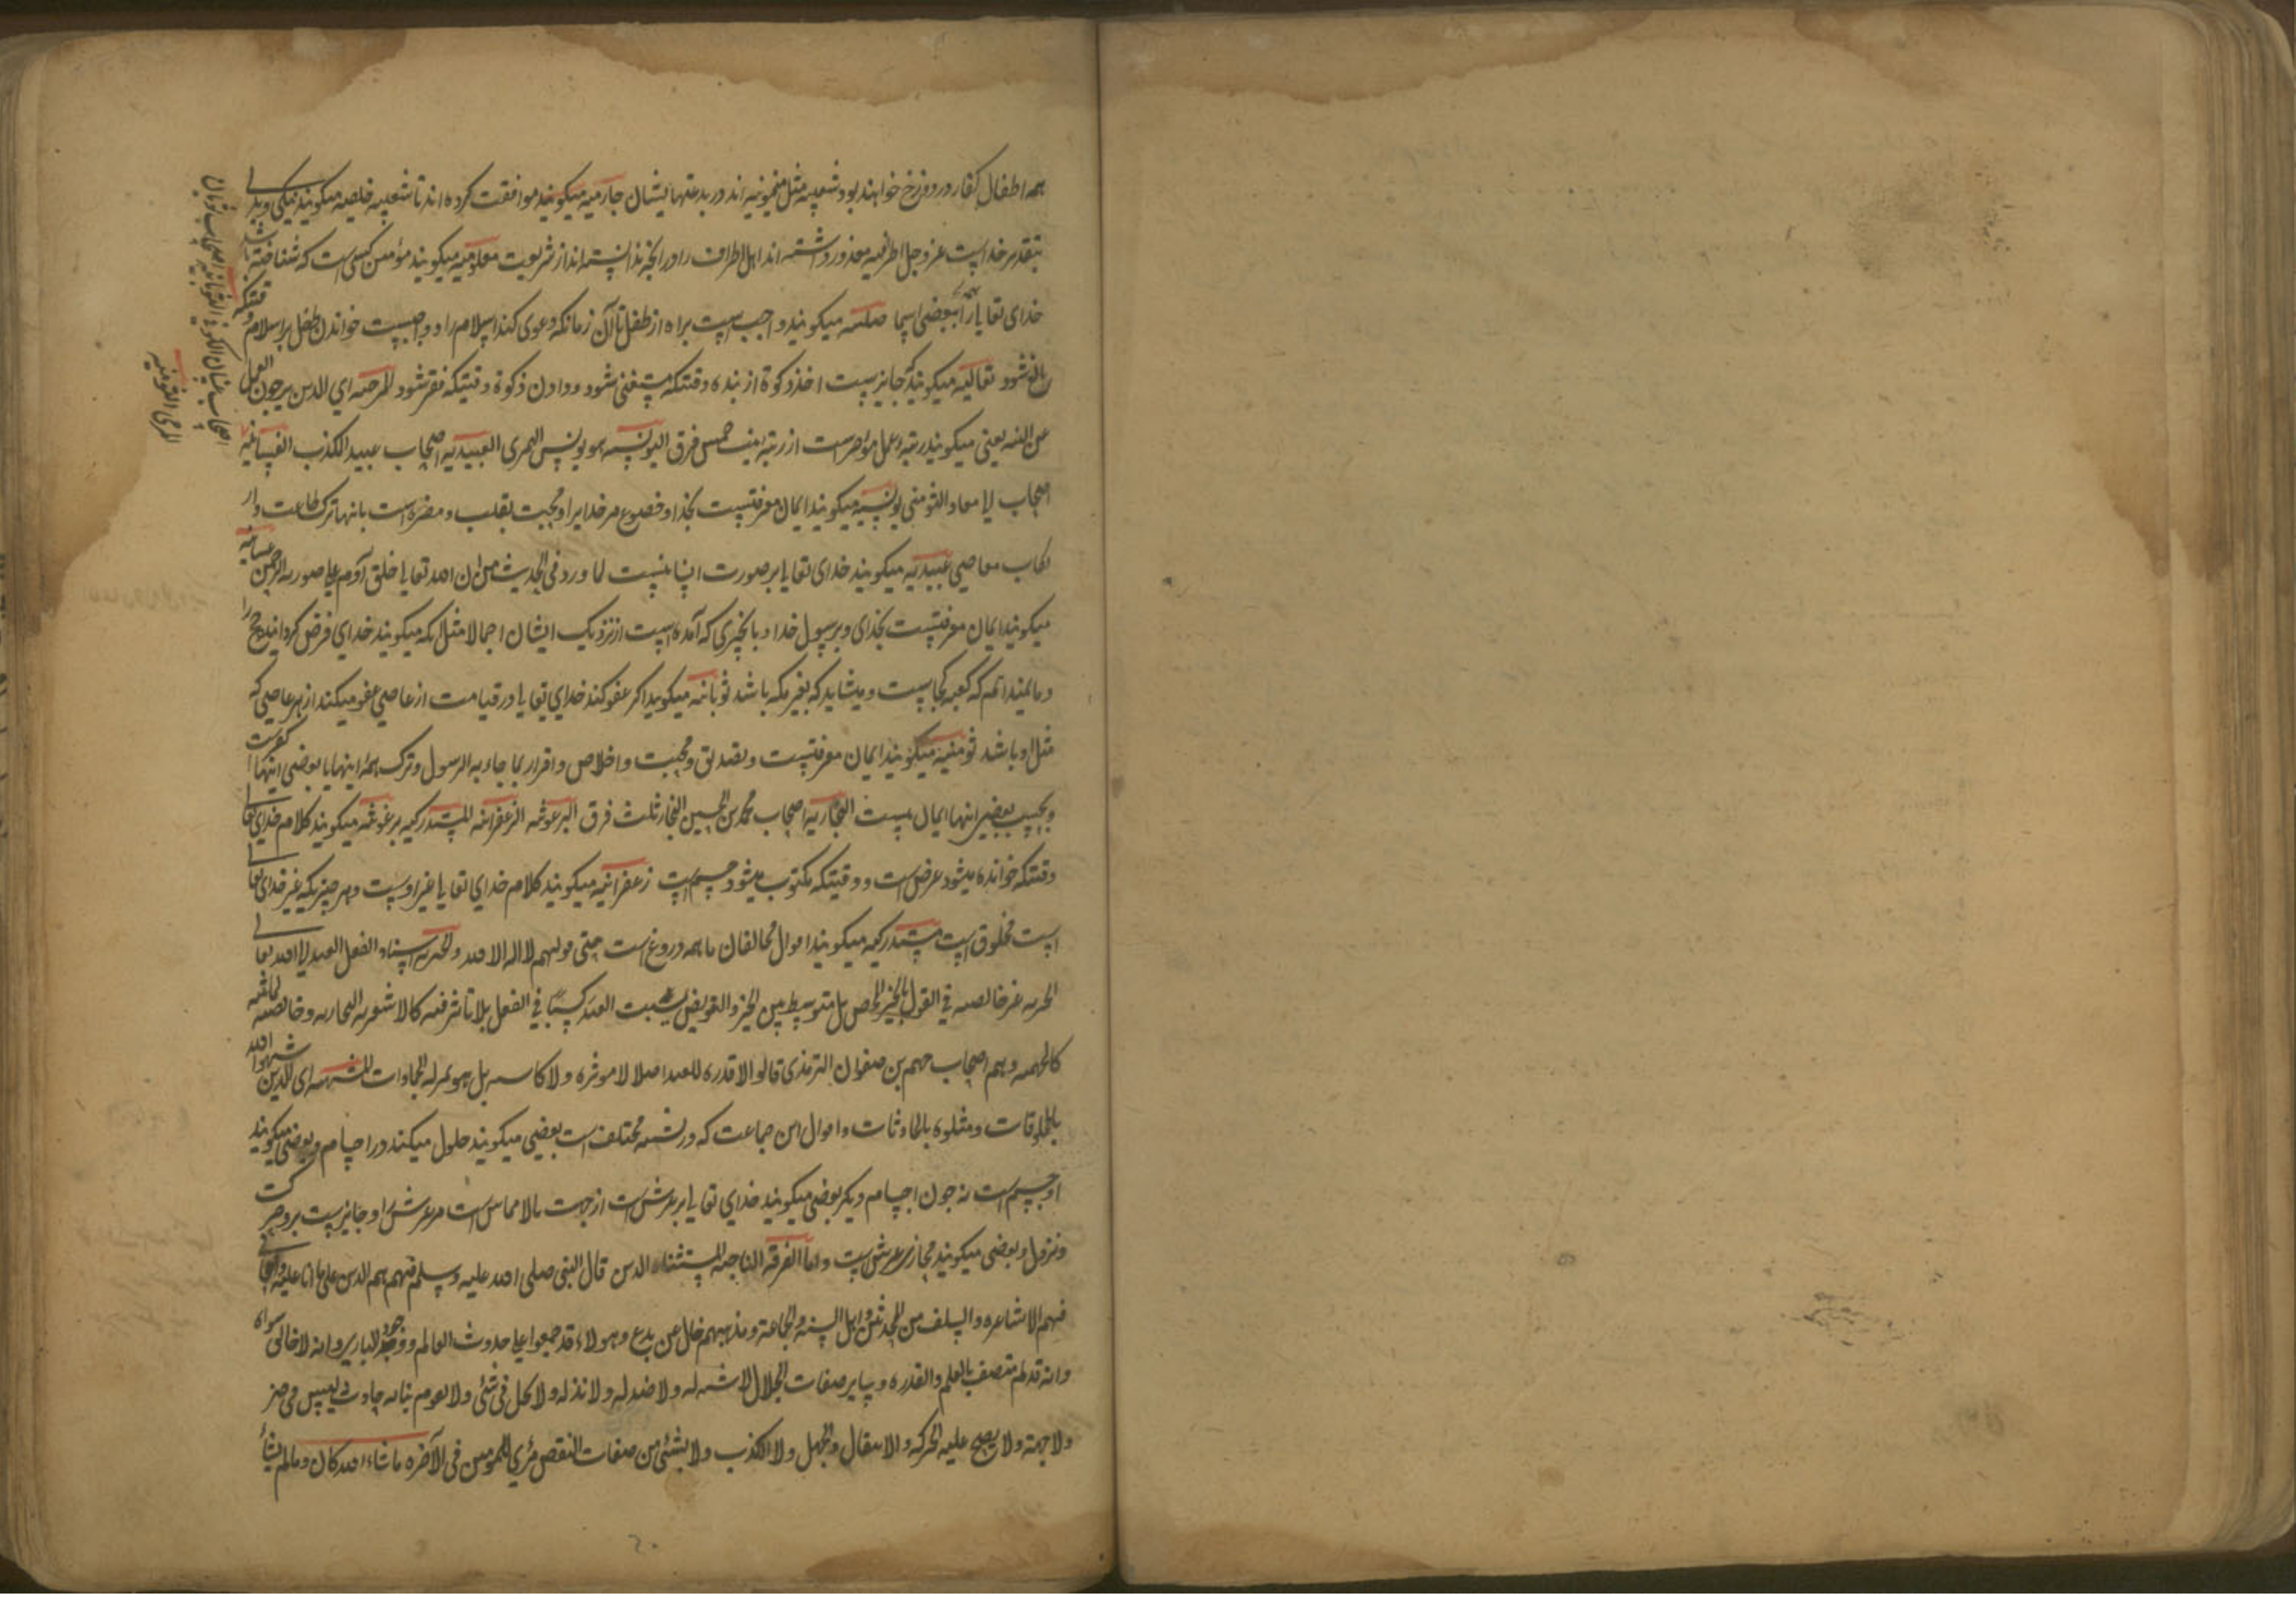 همه اطفال کفار در دوزخ خواهند بود شعیبیه مثل میمونیه اند در بدعتها ایشان جازمیه میکویند موافقت کرده اند تا شعیبیه خلیصه میکویند نیکی و بدی
بتقدیر خداست عز و جل اطرافیه معذور داشته اند اهل اطراف را در انچه ندانسته اند از شریعت معلومیه میکویند مؤمن کسی است که شناخته باشد
خدای تعالی را ببعضی اسما صلتیه میکویند واجب است براه از طفل تا آن زمانکه دعوی کند اسلام را و واجبست خواندن طفل بر اسلام وقتیکه
بالغ شود ثعالبیه میکویند که جایزست اخذ زکوة از بنده وقتیکه مستغنی شود و دادن زکوة وقتیکه فقیر شود المرجئه ای الذین یرجون العمل
عن النیه یعنی میکویند رتبه عمل مؤخرست از رتبه نیت خمس فرق الیونسیه هو یونس النمری العبیدیه اصحاب عبید المکذب الغسانیه
اصحاب ابا معاد الثومنی یونسیه میکویند ایمان معرفتست بخدا و خضوع مر خدایرا و محبت بقلب و مضر است بانها ترک طاعت و ار
تکاب معاصی عبیدیه میکویند خدای تعالی بر صورت انسانست لما ورد فی الحدیث من ان الله تعالی خلق آدم علی صورة الرحمن غسانیه
میکویند ایمان معرفتست بخدای و برسول خدا و بانچیزی که آمده است از نزدیک ایشان اجمالا مثل انکه میکویند خدای فرض کردانید حج را
و ما نمیدانیم که کعبه کجاست و میشاید که بغیر مکه باشد ثوبانیه میکوید اکر عفو کند خدای تعالی در قیامت از عاصی عفو میکند از هر عاصی که
مثل او باشد ثومنیه میکویند ایمان معرفتست و تصدیق و محبت و اخلاص و اقرار بما جاء به الرسول و ترک همه اینها یا بعضی اینها کفرست
بعضی اینها ایمان نیست النجاریه اصحاب محمد بن الحسین النجار ثلث فرق البرغوثیه الزعفرانیه المستدرکیه برغوثیه میکویند کلام خدای تعالی
وقتیکه خوانده میشود عرض است و وقتیکه مکتوب میشود جسم است زعفرانیه میکویند کلام خدای تعالی غیر اوست و هر چیزیکه غیر خدای تعالی
است مخلوق است مستدرکیه میکویند اقوال مخالفان ما همه دروغ است حتی قولهم لا اله الا الله والجبریه اسناد الفعل العبد الی الله تعالی
الجبریه غیر خالصه فی القول بالجبر المحض بل متوسط بین الجبر و التفویض یثبت العبد کسبا فی الفعل بلا تاثیر فیه کالاشعریه النجاریه و خالصه
کالجهمیه و هم اصحاب جهم بن صفوان الترمذی قالوا لا قدره للعبد اصلا لا موثره و لا کاسبه بل هو بمنزله الجمادات المشبهه ای الذین شبهوا الله
بالمخلوقات و مثلوه بالحادثات و اقوال این جماعت که در تشبیه مختلف است بعضی میکویند حلول میکند در اجسام و بعضی میکویند
او جسم است نه چون اجسام دیکر بعضی میکویند خدای تعالی بر عرش است از جهت بالا مماس است مر عرش را و جایزست برو حرکت
و نزول و بعضی میکویند محاذی عرش است و اما الفرقه الناجیه المستثناه الذین قال النبی صلی الله علیه و سلم فیهم هم الذین علی ما انا علیه و اصحابی
فهم الاشاعره و السلف من المحدثین و اهل السنه و الجماعة و مذهبهم خال عن بدع و هولاء قد اجمعوا علی حدوث العالم و وجود الباری و انه لا خالق سواه
و انه قدیم متصف بالعلم و القدره و سایر صفات الجلال لا شبه له و لا ضد له و لا ند له و لا یحل فی شئ و لا یقوم بذاته حادث لیس فی حیز
و لا جهة و لا یصح علیه الحرکه و الانتقال و الجهل و لا الکذب و لا بشئ من صفات النقص مرئی للمومنین فی الآخره ما شاء الله کان و ما لم یشأ
اصحاب غسان الکوفی الثوبانیه اصحاب ثوبان
المرجی الثومنیه